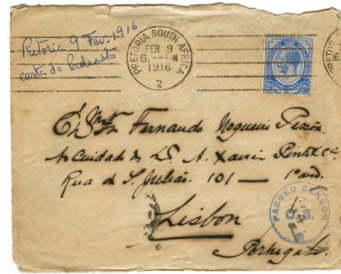 Pretoria 9 Fev. 1916
carta do Padrasto
PRETORIA, SOUTH AFRICA
FEB 9
6. — M
1916
2
Exmo Snr Fernando Nogueira Pessôa
Ao Cuidado de A. Xavier Pinto & Cª
Rua de S. Julião 101 — 1º and.
Lisbon
Portugal
PASSED CENSOR